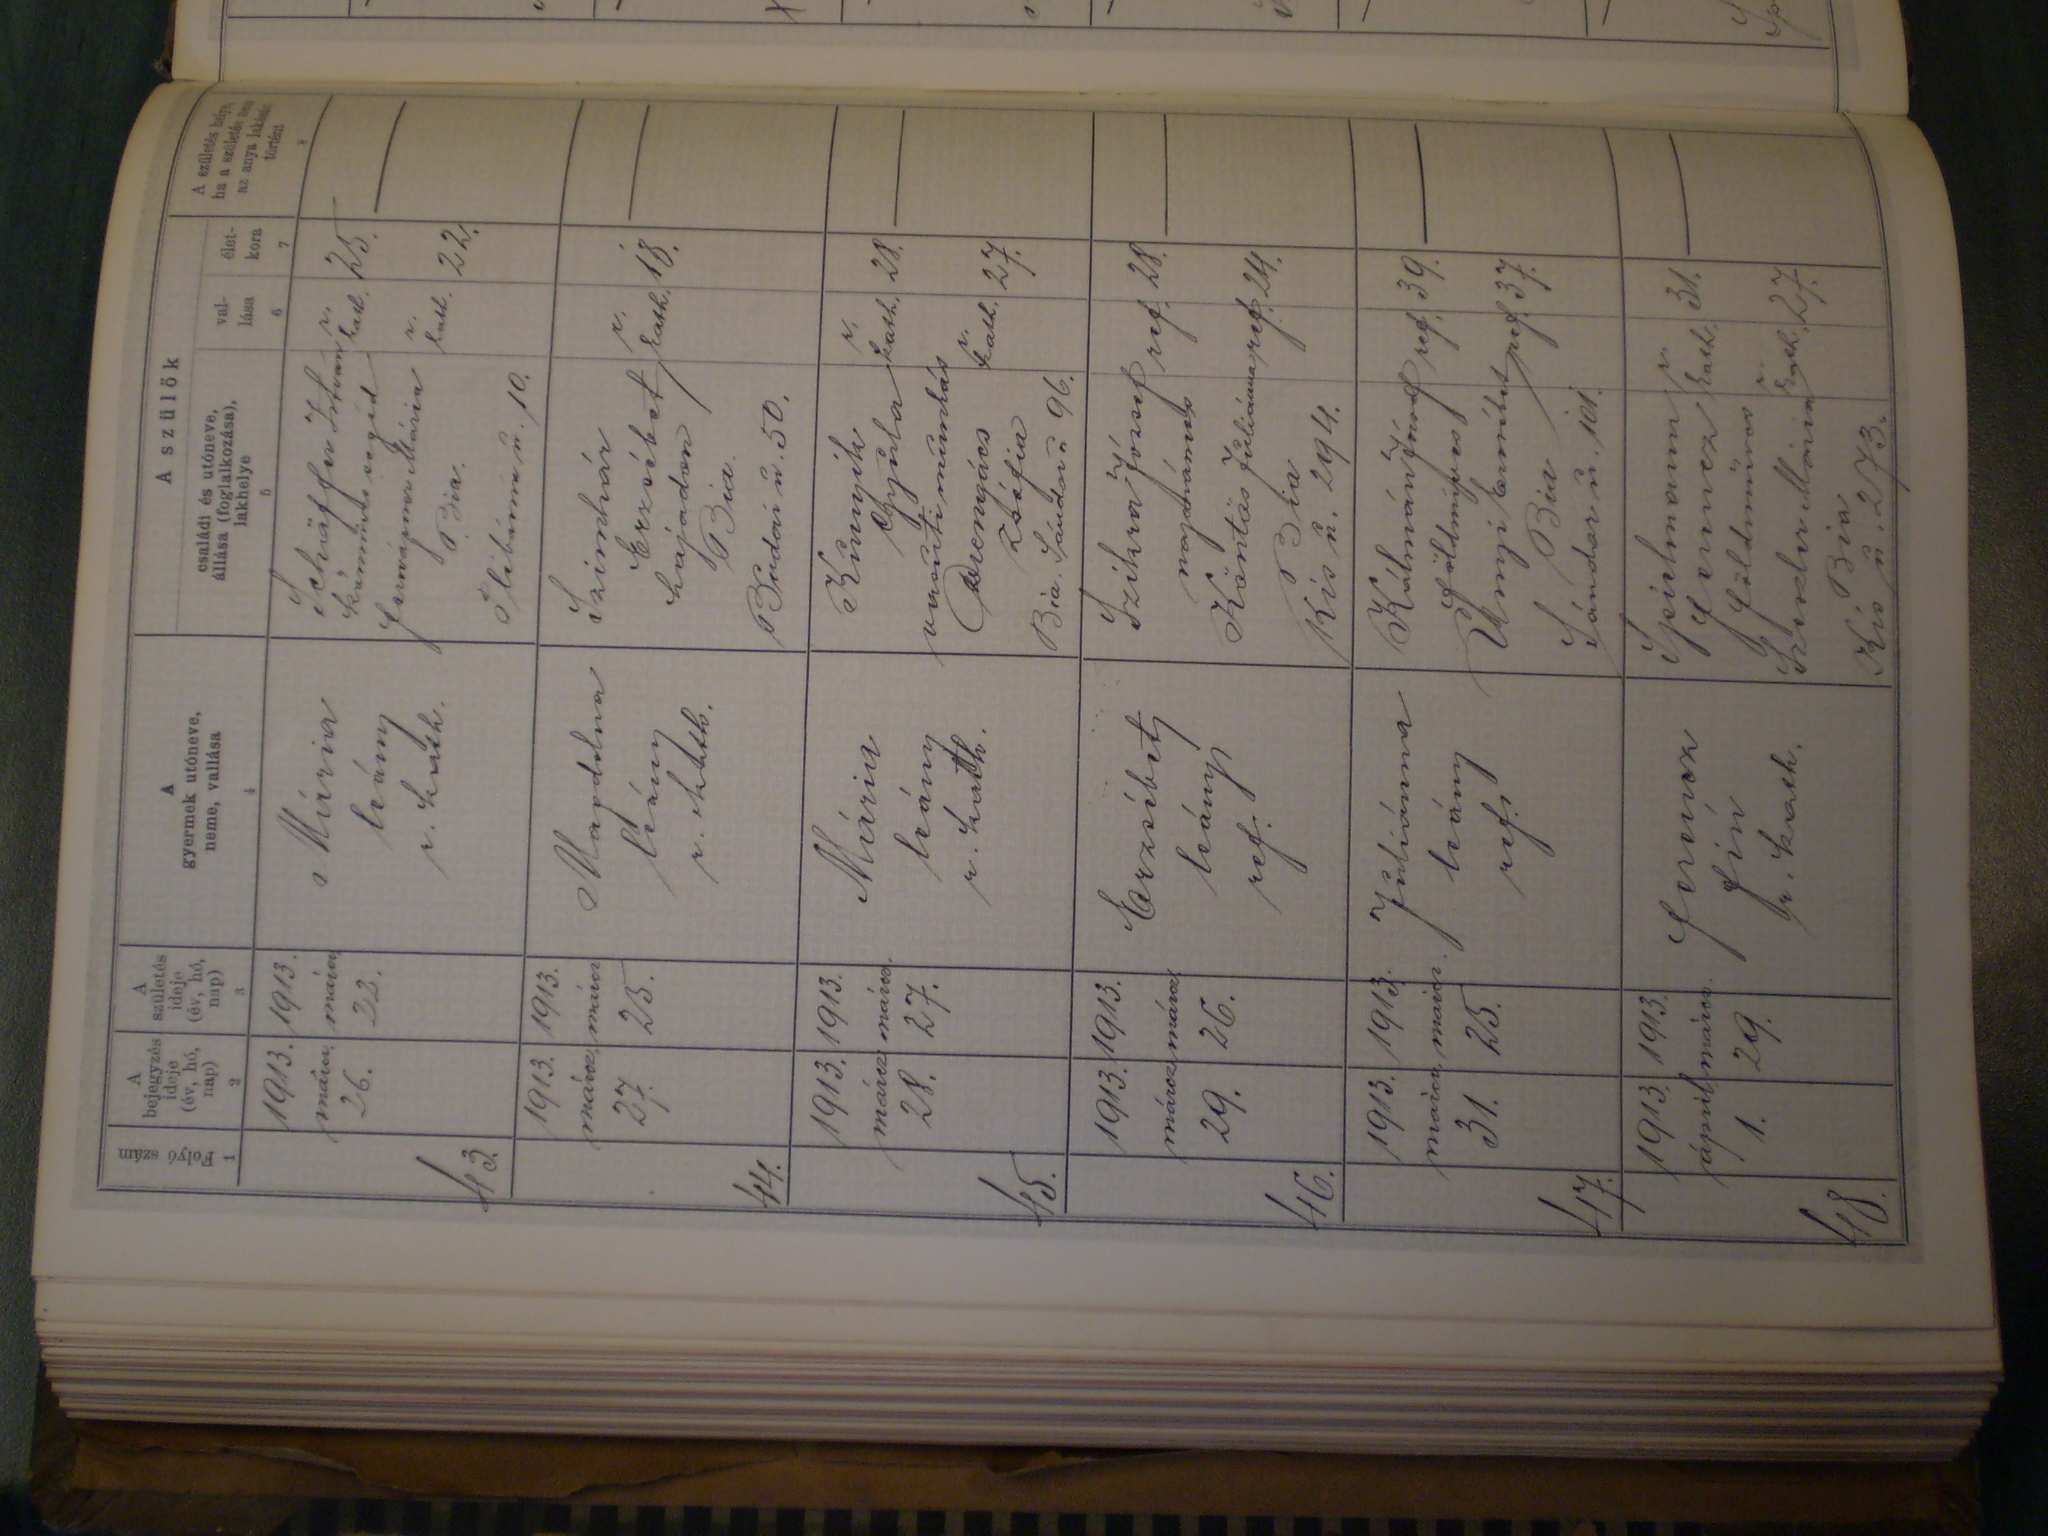 A szülők
Folyó szám
A bejegyzés ideje (év, hó, nap)
A születés ideje (év, hó, nap)
A gyermek utóneve, neme, vallása
családi és utóneve, állása (foglalkozása), lakhelye
vallása
életkora
A születés helye, ha a születés nem az anya lakásán történt
1
2
3
4
5
6
7
8
43.
1913. márcz. 26.
1913. márcz. 22.
Mária
leány
r. kath.
Schäffer István
r. kath. 25.
Mária
r. kath. 22.
Bia.
10.
44.
1913. márcz. 27.
1913. márcz 25.
Magdolna
leány
r. kath.
Szimhár
Erzsébet
r. kath. 18.
hajadon
Bia.
Budai ú. 50.
45.
1913. márcz 28.
1913. márcz. 27.
Mária
leány
r. kath.
Gyula
r. kath. 28.
vasúti munkás
Zsófia
r. kath. 27.
Bia. Sándor ú 96.
46.
1913. márcz 29.
1913. márcz 26.
Erzsébet
leány
ref.
Szikra József ref. 28.
napszámos
Köntös Juliánna ref. 24.
Bia
Kis ú. 294.
47.
1913. márcz. 31.
1913. márcz. 25.
Juliánna
leány
ref.
Kálmán József ref. 39.
földmíves
Erzsébet ref. 37.
Bia
Sándor ú. 101.
48.
1913. ápril 1.
1913. márcz. 29.
Ferencz
fiú
r. kath.
Spielmann
Ferencz
r. kath. 31.
földmíves
Mária
r. kath. 27.
Bia
Kis ú. 273.